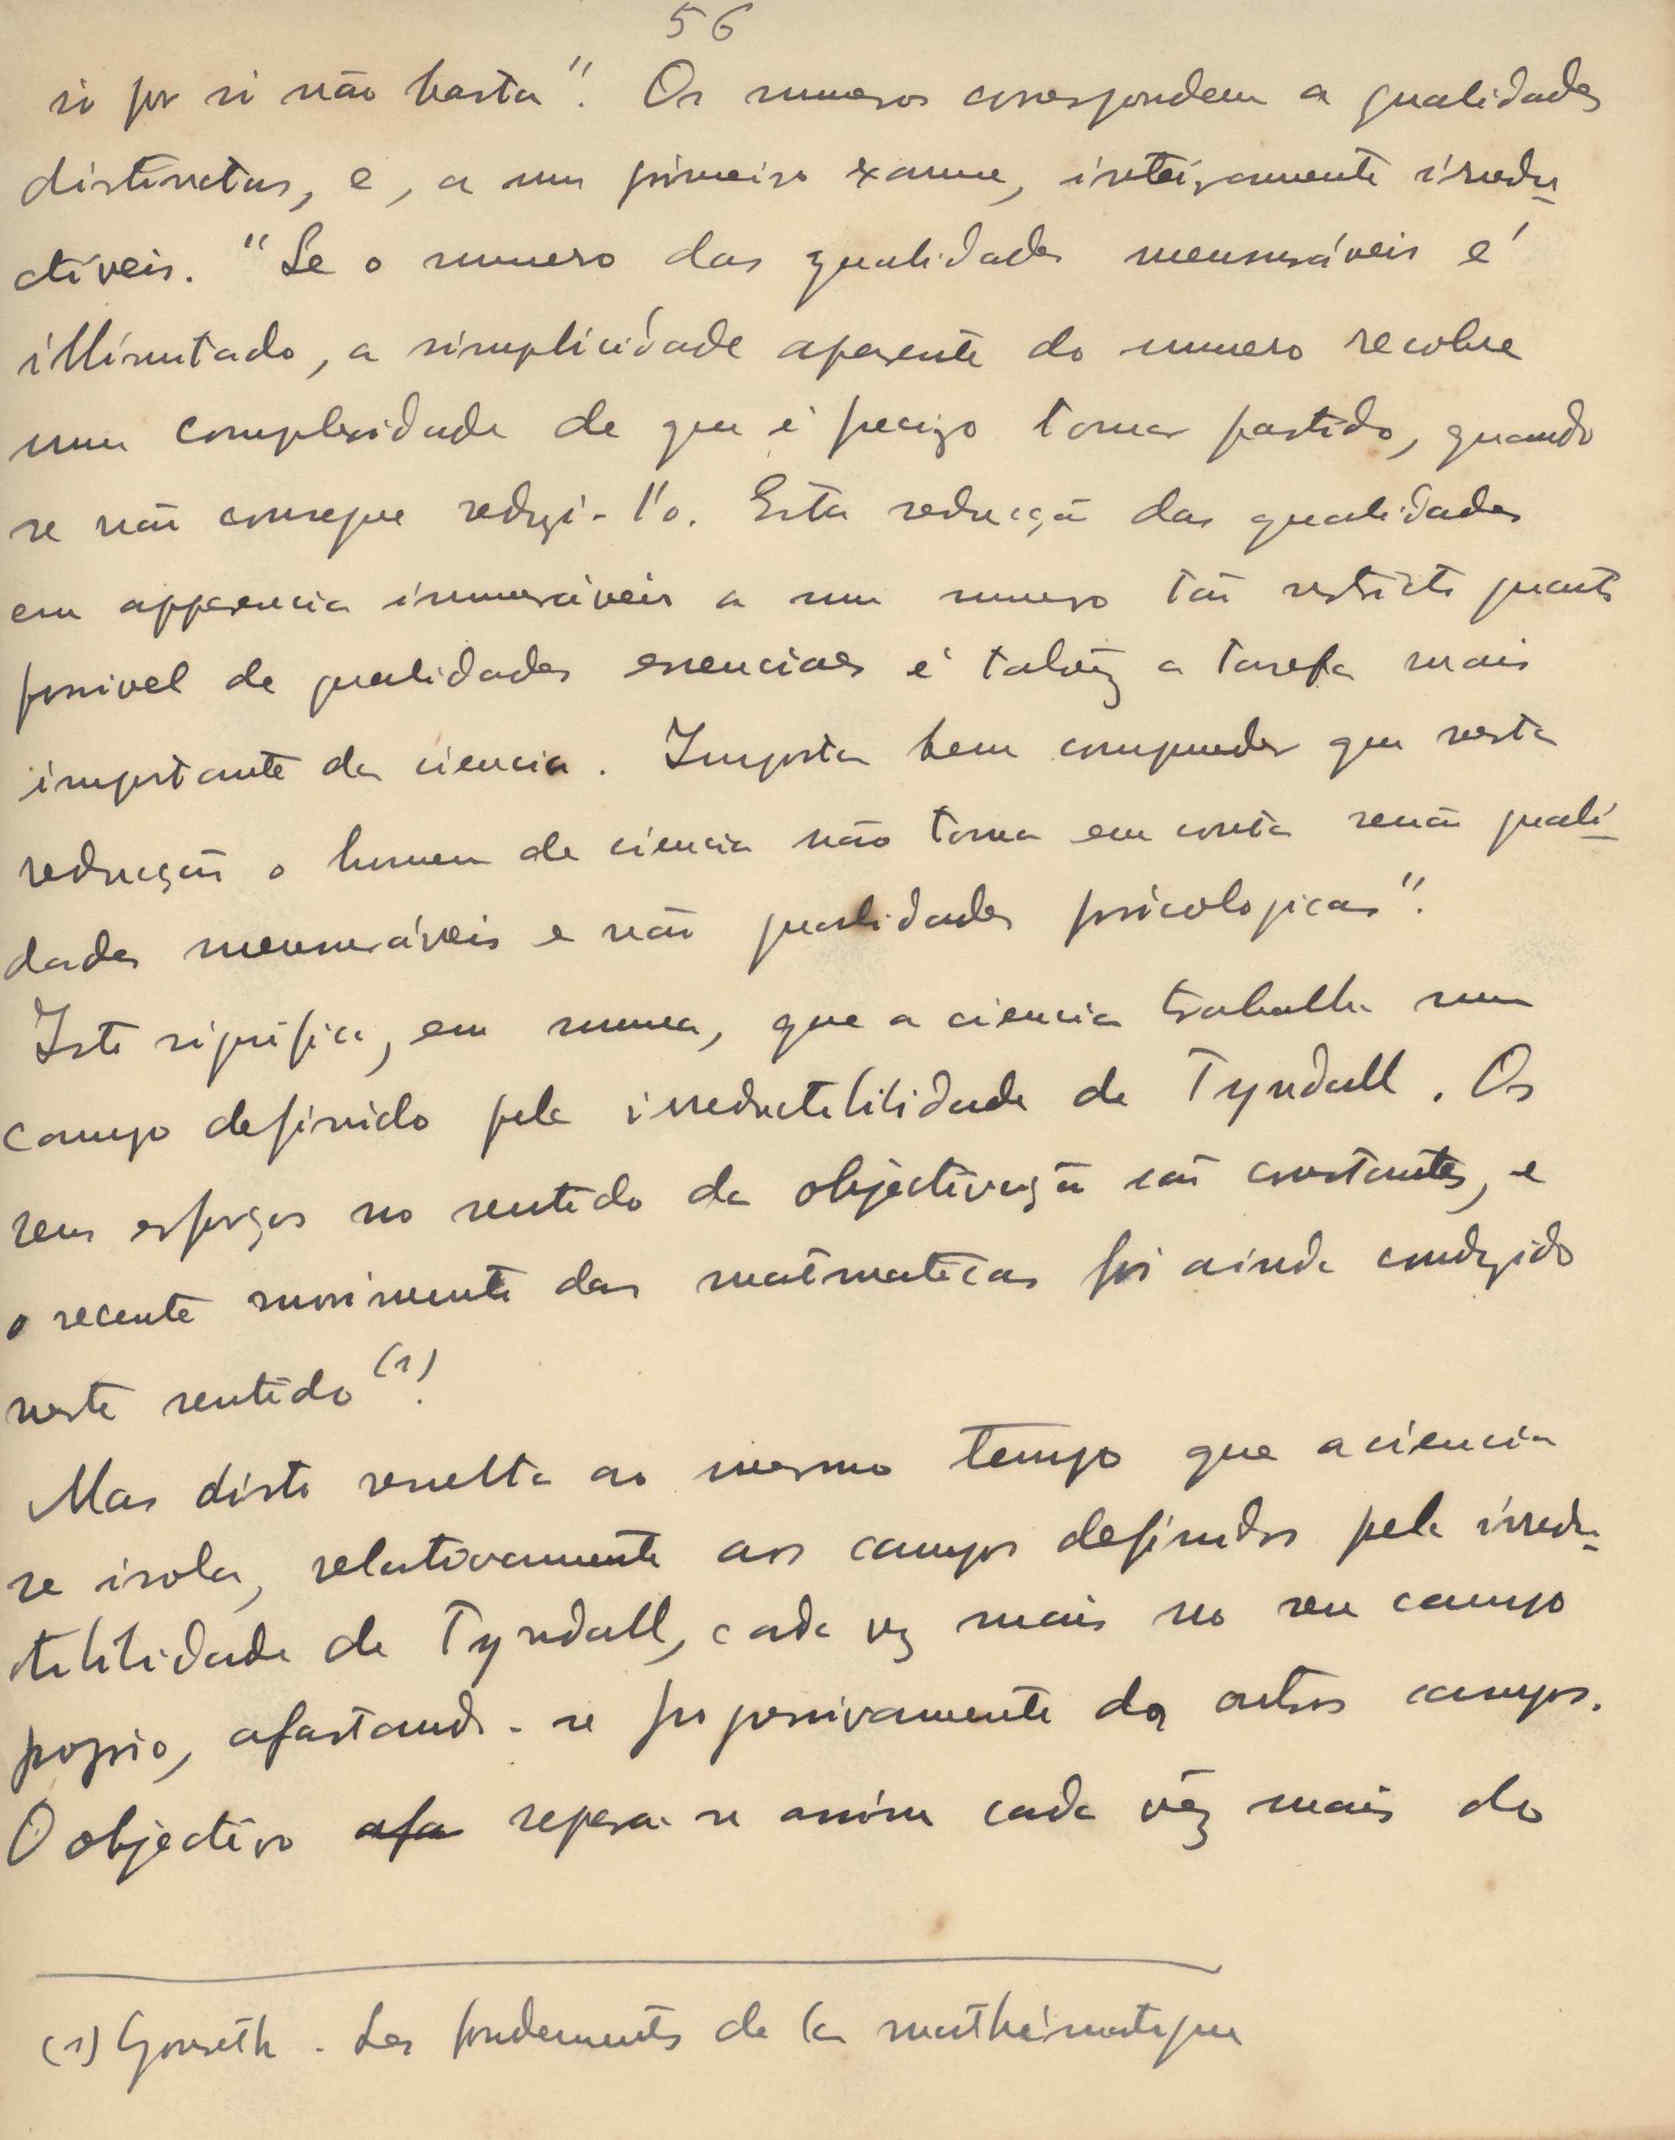 56
si por si não basta". Os numeros correspondem a qualidades
distinctas, e, a um primeiro exame, inteiramente irredu-
ctiveis. "Se o numero das qualidades mensuráveis é
illimitado, a simplicidade aparente do numero recobre
uma complexidade de que é preciso tomar partido, quando
se não consegue reduzi-l'o. Esta reducção das qualidades
em apparencia inumeráveis a um numero tão restricto quanto
possivel de qualidades essenciaes é talvêz a tarefa mais
importante da ciencia. Importa bem comprehender que nesta
reducção o homem de ciencia não toma em conta senão quali-
dades mensuráveis e não qualidades psicologicas".
Isto significa, em summa, que a ciencia trabalha num
campo definido pela irreductibilidade de Tyndall. Os
seus esforços no sentido da objectivação são constantes, e
o recente movimento das matematicas foi ainda conduzido
neste sentido (1).
Mas disto resulta ao mesmo tempo que a ciencia
se isola, relativamente aos campos definidos pela irredu-
ctibilidade de Tyndall, cada vez mais no seu campo
proprio, afastando-se progressivamente dos outros campos.
O objectivo afa separa-se assim cada vêz mais do
(1) Gonseth - Les fondements de la mathématique